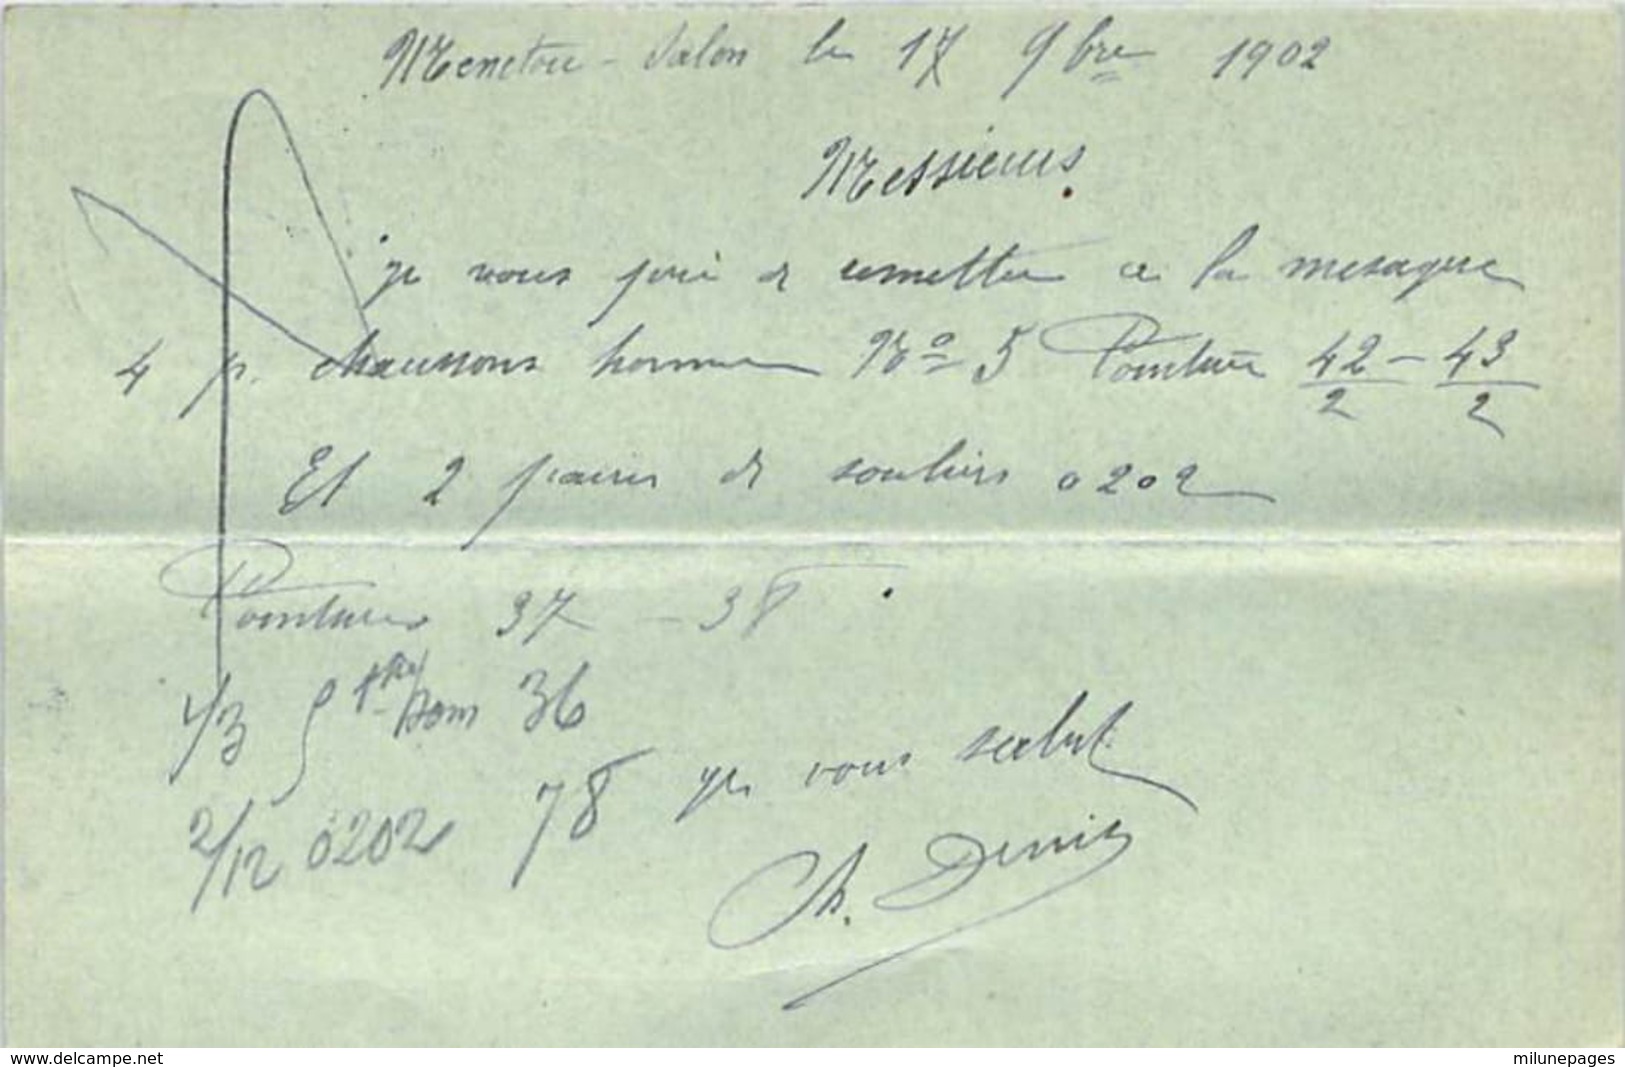 Menetou-Salon le 17 9bre 1902
Messieurs
je vous prie de remettre a la mesagere
4 p. chaussons homme No 5 Pointure 42/2 - 43/2
Et 2 paires de souliers 0202
Pointures 37 - 38
1/3 36
2/12 0202 78 je vous salut
Ch. Denis
www.delcampe.net
milunepages